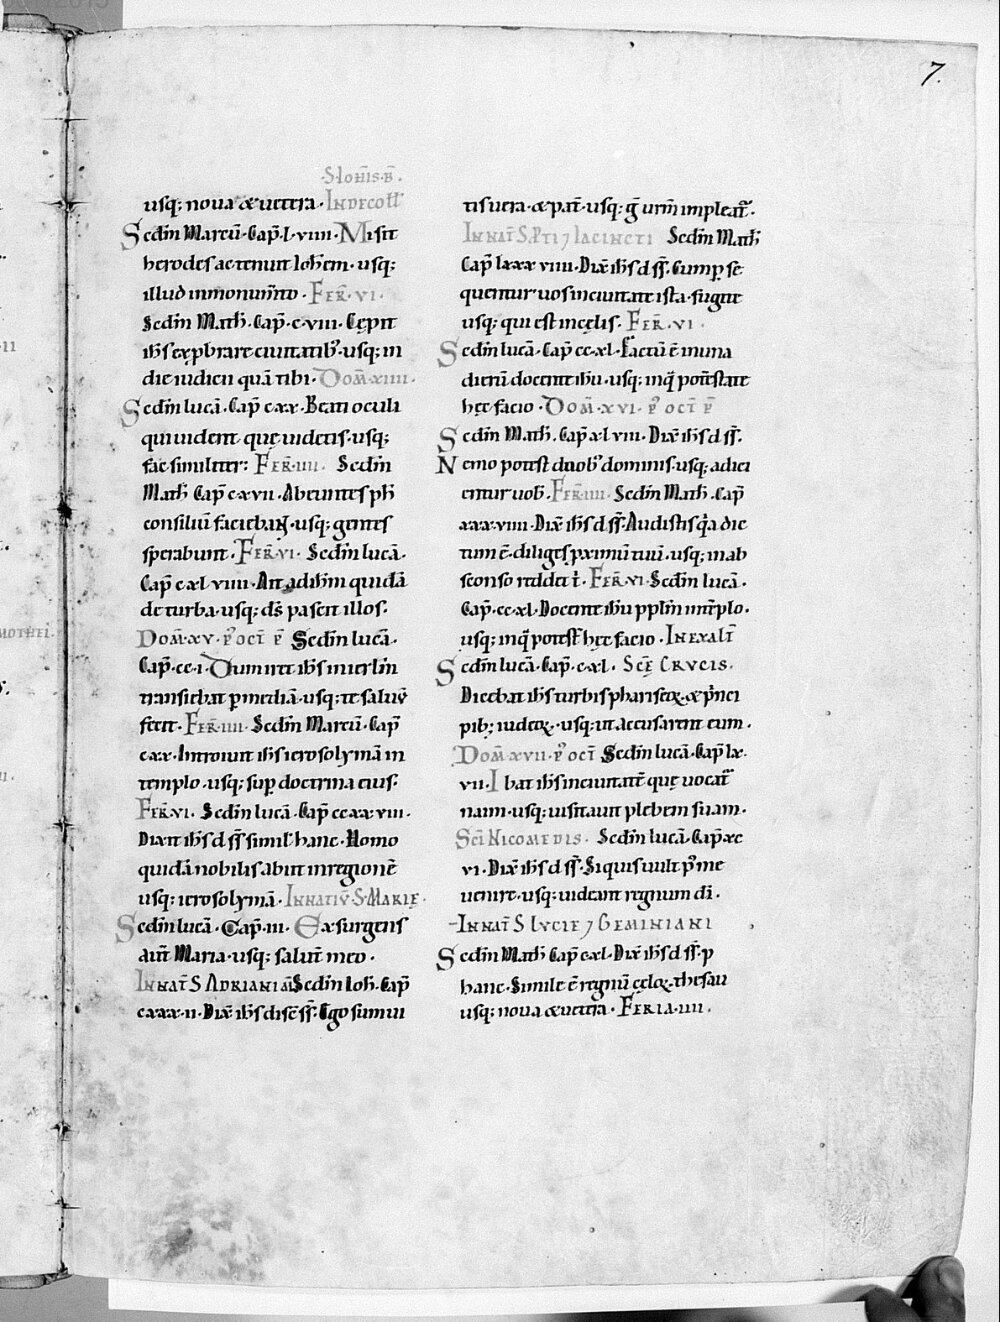 7.
·S·IOHIS·B̄·
usq; noua & uetera · IN DECOLL̄
Scd̄m Marcū · Cap̄ · L · viiii · Misit
herodes ac tenuit Ioh̄em · usq;
illud in monum̄to · FER̄ · VI ·
Scd̄m Math̄ · Cap̄ · c · viii · Cępit
ih̄s exp̱brare ciuitatib᷒ · usq; in
die iudicii quā tibi · DOM̄ · XIIII ·
Scd̄m lucā · Cap̄ cxx · Beati oculi
qui uident quę uidetis · usq;
fac similiter : FER̄ · IIII · Scd̄m
Math̄ Cap̄ cxvii · Abeuntes ph̄
consiliū faciebant · usq; gentes
sperabunt · FER̄ · VI · Scd̄m lucā ·
Cap̄ cxl viiii · Ait ad ih̄m quidā
de turba · usq; d̄s pascit illos ·
DOM̄ · XV · P᷒ OCT̄ P̄ Scd̄m lucā ·
Cap̄ · cc · i · Dum iret ih̄s in ierl̄m
transiebat p̱ mediā · usq; te saluū
fecit · FER̄ · IIII · Scd̄m Marcū · Cap̄
cxx · Introiuit ih̄s ierosolymā in
templo · usq; sup̱ doctrina eius ·
FER̄ · VI · Scd̄m lucā · Cap̄ cc xx viii ·
Dixit ih̄s d s̄s̄ simil̄ hanc · Homo
quidā nobilis abiit in regionē
usq; ierosolymā · IN NATIV̄ · S · MARIĘ ·
Scd̄m lucā · Cap̄ · iii · Exsurgens
aut̄ Maria · usq; salut̄ meo ·
IN NAT̄ S ADRIANI M̄ Scd̄m Ioh̄ · Cap̄
cxxx · ii · Dix̄ ih̄s discs̄s̄ · Ego sum ui
tis uera · & pat̄ · usq; g̅ ur̄m impleat᷒ ·
IN NAT̄ S · P̄TI ⁊ IACINCTI Scd̄m Math̄
Cap̄ lxxx viiii · Dix̄ ih̄s d s̄s̄ · Cum p̱se
quentur uos in ciuitate ista · fugite
usq; qui est in cęlis · FER̄ · VI ·
Scd̄m lucā · Cap̄ cc · xl · Factū ē in una
dierū docente ih̄u · usq; in q̄ potestate
hęc facio · DOM̄ · XVI · P᷒ OCT̄ P̄
Scd̄m Math̄ · Cap̄ xl viii · Dix̄ ih̄s d s̄s̄ ·
Nemo potest duob᷒ dominis · usq; adici
entur uob̄ · FER̄ IIII · Scd̄m Math̄ · Cap̄
xxx · viiii · Dix̄ ih̄s d s̄s̄ · Audistis q̇a dic
tum ē · diliges p̱ximū tuū · usq; in ab
sconso reddet t̄ · FER̄ · VI · Scd̄m lucā ·
Cap̄ · cc · xl · Docente ih̄u ppl̄m in tēplo ·
usq; in q̄ potest̄ hęc facio · IN EXALT̄
Scd̄m lucā · Cap̄ · c · xl · SCĘ CRVCIS ·
Dicebat ih̄s turbis phariseoꝝ · & p̊nci
pib; iudeoꝝ · usq; ut accusarent eum ·
DOM̄ · XVII · P᷒ OCT̄ Scd̄m lucā · Cap̄ lx ·
vii · Ibat ih̄s in ciuitatē quę uocat᷒
naim · usq; uisitauit plebem suam ·
SCI NICOMEDIS · Scd̄m lucā · Cap̄ xc
vi · Dix̄ ih̄s d s̄s̄ · Si quis uult p᷒ me
uenire · usq; uideant regnum dī ·
IN NAT̄ S LVCIE ⁊ GEMINIANI
Scd̄m Math̄ Cap̄ cxl · Dix̄ ih̄s d s̄s̄ · p
hanc · Simile ē regnū cęloꝝ · thesau
usq; noua & uetera · FERIA · IIII ·